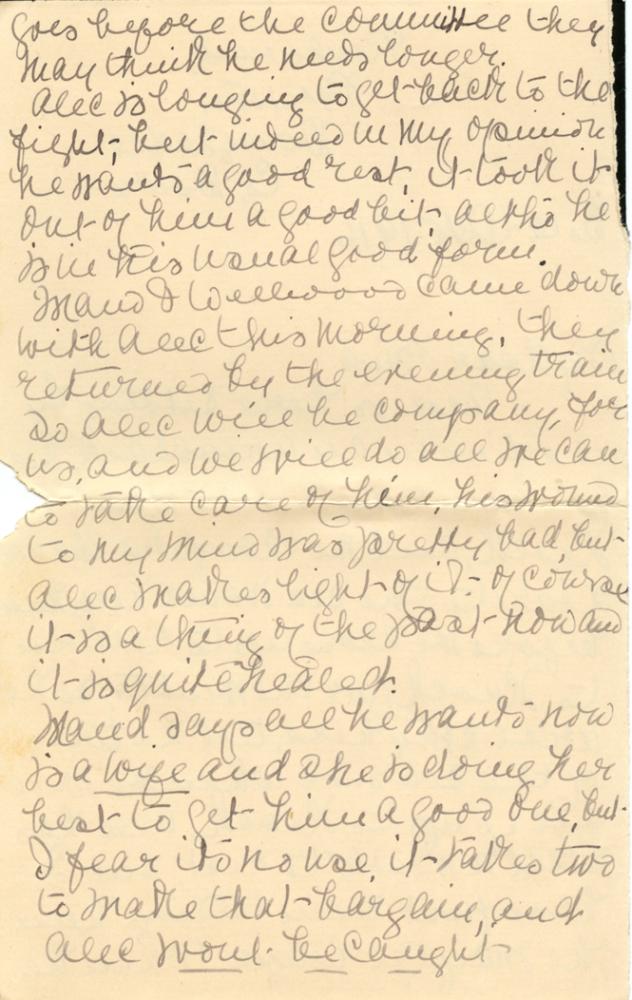 goes before the committee they
may think he needs longer.
Alec is longing to get back to the
fight, but indeed in my opinion
he wants a good rest, it took it
out of him a good bit, altho he
is in his usual good form.
Maud & Wellwood came down
with Alec this morning, they
returned by the evening train
So Alec will be company for
us, and we will do all we can
to take care of him, his wound
to my mind was pretty bad, but
Alec makes light of it - of course
it is a thing of the past now and
it is quite healed.
Maud says all he wants now
is a wife and she is doing her
best to get him a good one, but
I fear its no use, it takes two
to make that bargain, and
Alec wont be caught